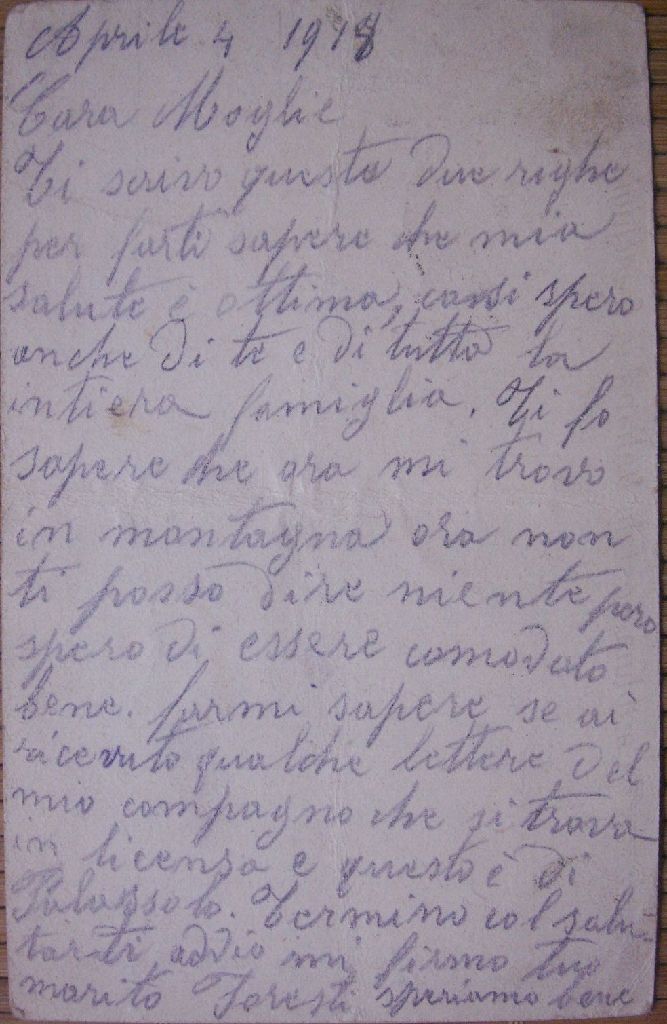 Aprile 4 1918
Cara Moglie
Ti scrivo queste due righe
per farti sapere che mia
salute è ottima, cossi spero
anche di te e di tutta la
intiera famiglia. Ti fo
sapere che ora mi trovo
in montagna ora non
ti posso dire niente pero
spero di essere comodato
bene. farmi sapere se ai
ricevuto qualche lettere del
mio compagno che si trova
in licensa e questo è di
Palassolo. Termino col salu-
tarti addio mi firmo tuo
marito Foresti speriamo bene